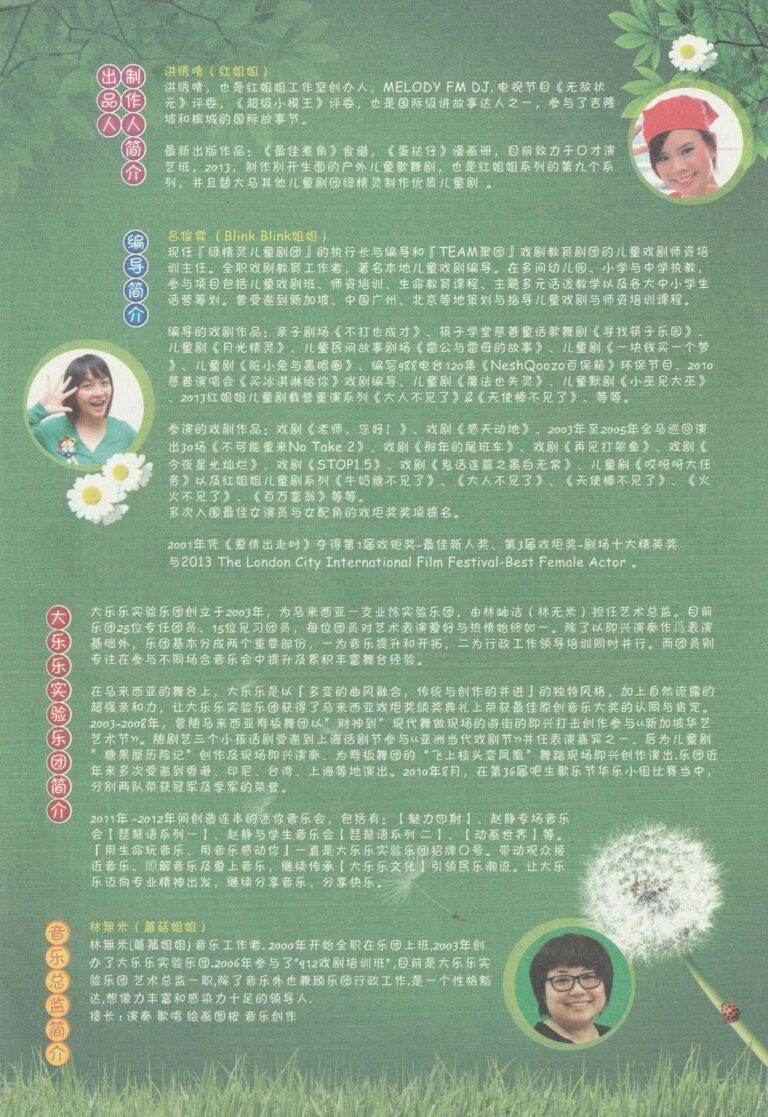 出品人
制作人简介
洪绣晴（红姐姐）
洪绣晴，也是红姐姐工作室创办人，MELODY FM DJ,电视节目《无敌状
元》评委，《超级小模王》评委，也是国际级讲故事达人之一，参与了吉隆
坡和槟城的国际故事节。
最新出版作品：《最佳煮角》食谱，《蛋挞仔》漫画册，目前致力于口才演
艺班，2013，制作别开生面的户外儿童歌舞剧，也是红姐姐系列的第九个系
列，并且替大马其他儿童剧团绿精灵制作优质儿童剧 。
编导简介
吕俊霖 （Blink Blink姐姐）
现任『绿精灵儿童剧团』的执行长与编导和『TEAM聚团』戏剧教育剧团的儿童戏剧师资培
训主任。全职戏剧教育工作者，著名本地儿童戏剧编导。在多间幼儿园、小学与中学执教，
参与项目包括儿童戏剧班、师资培训、生命教育课程、主题多元活泼教学以及各大中小学生
活营筹划。曾受邀到新加坡、中国广州、北京等地策划与指导儿童戏剧与师资培训课程。
编导的戏剧作品：亲子剧场《不打也成才》、筷子学堂慈善童话歌舞剧《寻找筷子乐园》、
儿童剧《月光精灵》、儿童民间故事剧场《雷公与雷母的故事》、儿童剧《一块钱买一个梦
》、儿童剧《脏小鬼与黑眼圈》、编写988电台120集《NeshQoozo百保箱》环保节目、2010
慈善演唱会《买冰淇淋给你》戏剧编导、儿童剧《魔法也失灵》、儿童默剧《小巫见大巫》
、2013红姐姐儿童剧载誉重演系列《大人不见了》&《天使棒不见了》、等等。
参演的戏剧作品：戏剧《老师，您好！》、戏剧《惑天动地》、2003年至2005年全马巡回演
出30场《不可能重来No Take 2》、戏剧《那年的尾班车》、戏剧《再见打架鱼》、戏剧《
今夜星光灿烂》、戏剧《STOP1.5》、戏剧《鬼话连篇之黑白无常》、儿童剧《哎呀呀大任
务》以及红姐姐儿童剧系列《牛奶糖不见了》、《大人不见了》、《天使棒不见了》、《火
火不见了》、《百万富翁》等等。
多次入围最佳女演员与女配角的戏炬奖奖项提名。
2001年凭《爱情出走时》夺得第1届戏矩奖-最佳新人奖、第3届戏炬奖-剧场十大精英奖
与2013 The London City International Film Festival-Best Female Actor 。
大乐乐实验乐团简介
大乐乐实验乐团创立于2003年，为马来西亚一支业馀实验乐团，由林岫诘（林无米）担任艺术总监。目前
乐团25位专任团员、15位见习团员，每位团员对艺术表演爱好与热情始终如一。除了以即兴演奏作爲表演
基础外，乐团基本分成两个重要部份，一为音乐提升和开拓，二为行政工作领导培训同时并行。而团员则
专注在参与不同场合音乐会中提升及累积丰富舞台经验。
在马来西亚的舞台上，大乐乐是以「多变的曲风融合，传统与创作的并进」的独特风格，加上自然流露的
超强亲和力，让大乐乐实验乐团获得了马来西亚戏炬奖颁奖典礼上荣获最佳原创音乐大奖的认同与肯定。
2003-2008年，曾随马来西亚寿板舞团以”财神到”现代舞做现场的游街的即兴打击创作参与《新加坡华艺
艺术节》。随剧艺三个小孩话剧受邀到上海话剧节参与《亚洲当代戏剧节》并任表演嘉宾之一、后为儿童剧
”糖果屋历险记”创作及现场即兴演奏、为寿板舞团的“飞上枝头变凤凰”舞蹈现场即兴创作演出.乐团近
年来多次受邀到香港、印尼、台湾、上海等地演出。2010年8月，在第36届吧生歌乐节华乐小组比赛当中，
分别两队荣获冠军及季军的荣誉。
2011年 -2012年间创造连串的迷你音乐会，包括有：【魅力四射】、赵静专场音乐
会【琵琶语系列一】、赵静与学生音乐会【琵琶语系列 二】、【动画世界】等。
「用生命玩音乐、用音乐感动你」一直是大乐乐实验乐团招牌口号。带动观众接
近音乐、瞭解音乐及爱上音乐，继续传承【大乐乐文化】引领民乐潮流。让大乐
乐迈向专业精神出发，继续分享音乐、分享快乐。
音乐总监简介
林無米（蘑菇姐姐）
林無米(蘑菰姐姐) 音乐工作者. 2000年开始全职在乐团上班,2003年创
办了大乐乐实验乐团.2006年参与了"912戏剧培训班",目前是大乐乐实
验乐团 艺术总监一职,除了音乐外也兼顾乐团行政工作.是一个性格豁
达,想像力丰富和感染力十足的领导人.
擅长：演奏 歌唱 绘画图桉 音乐创作